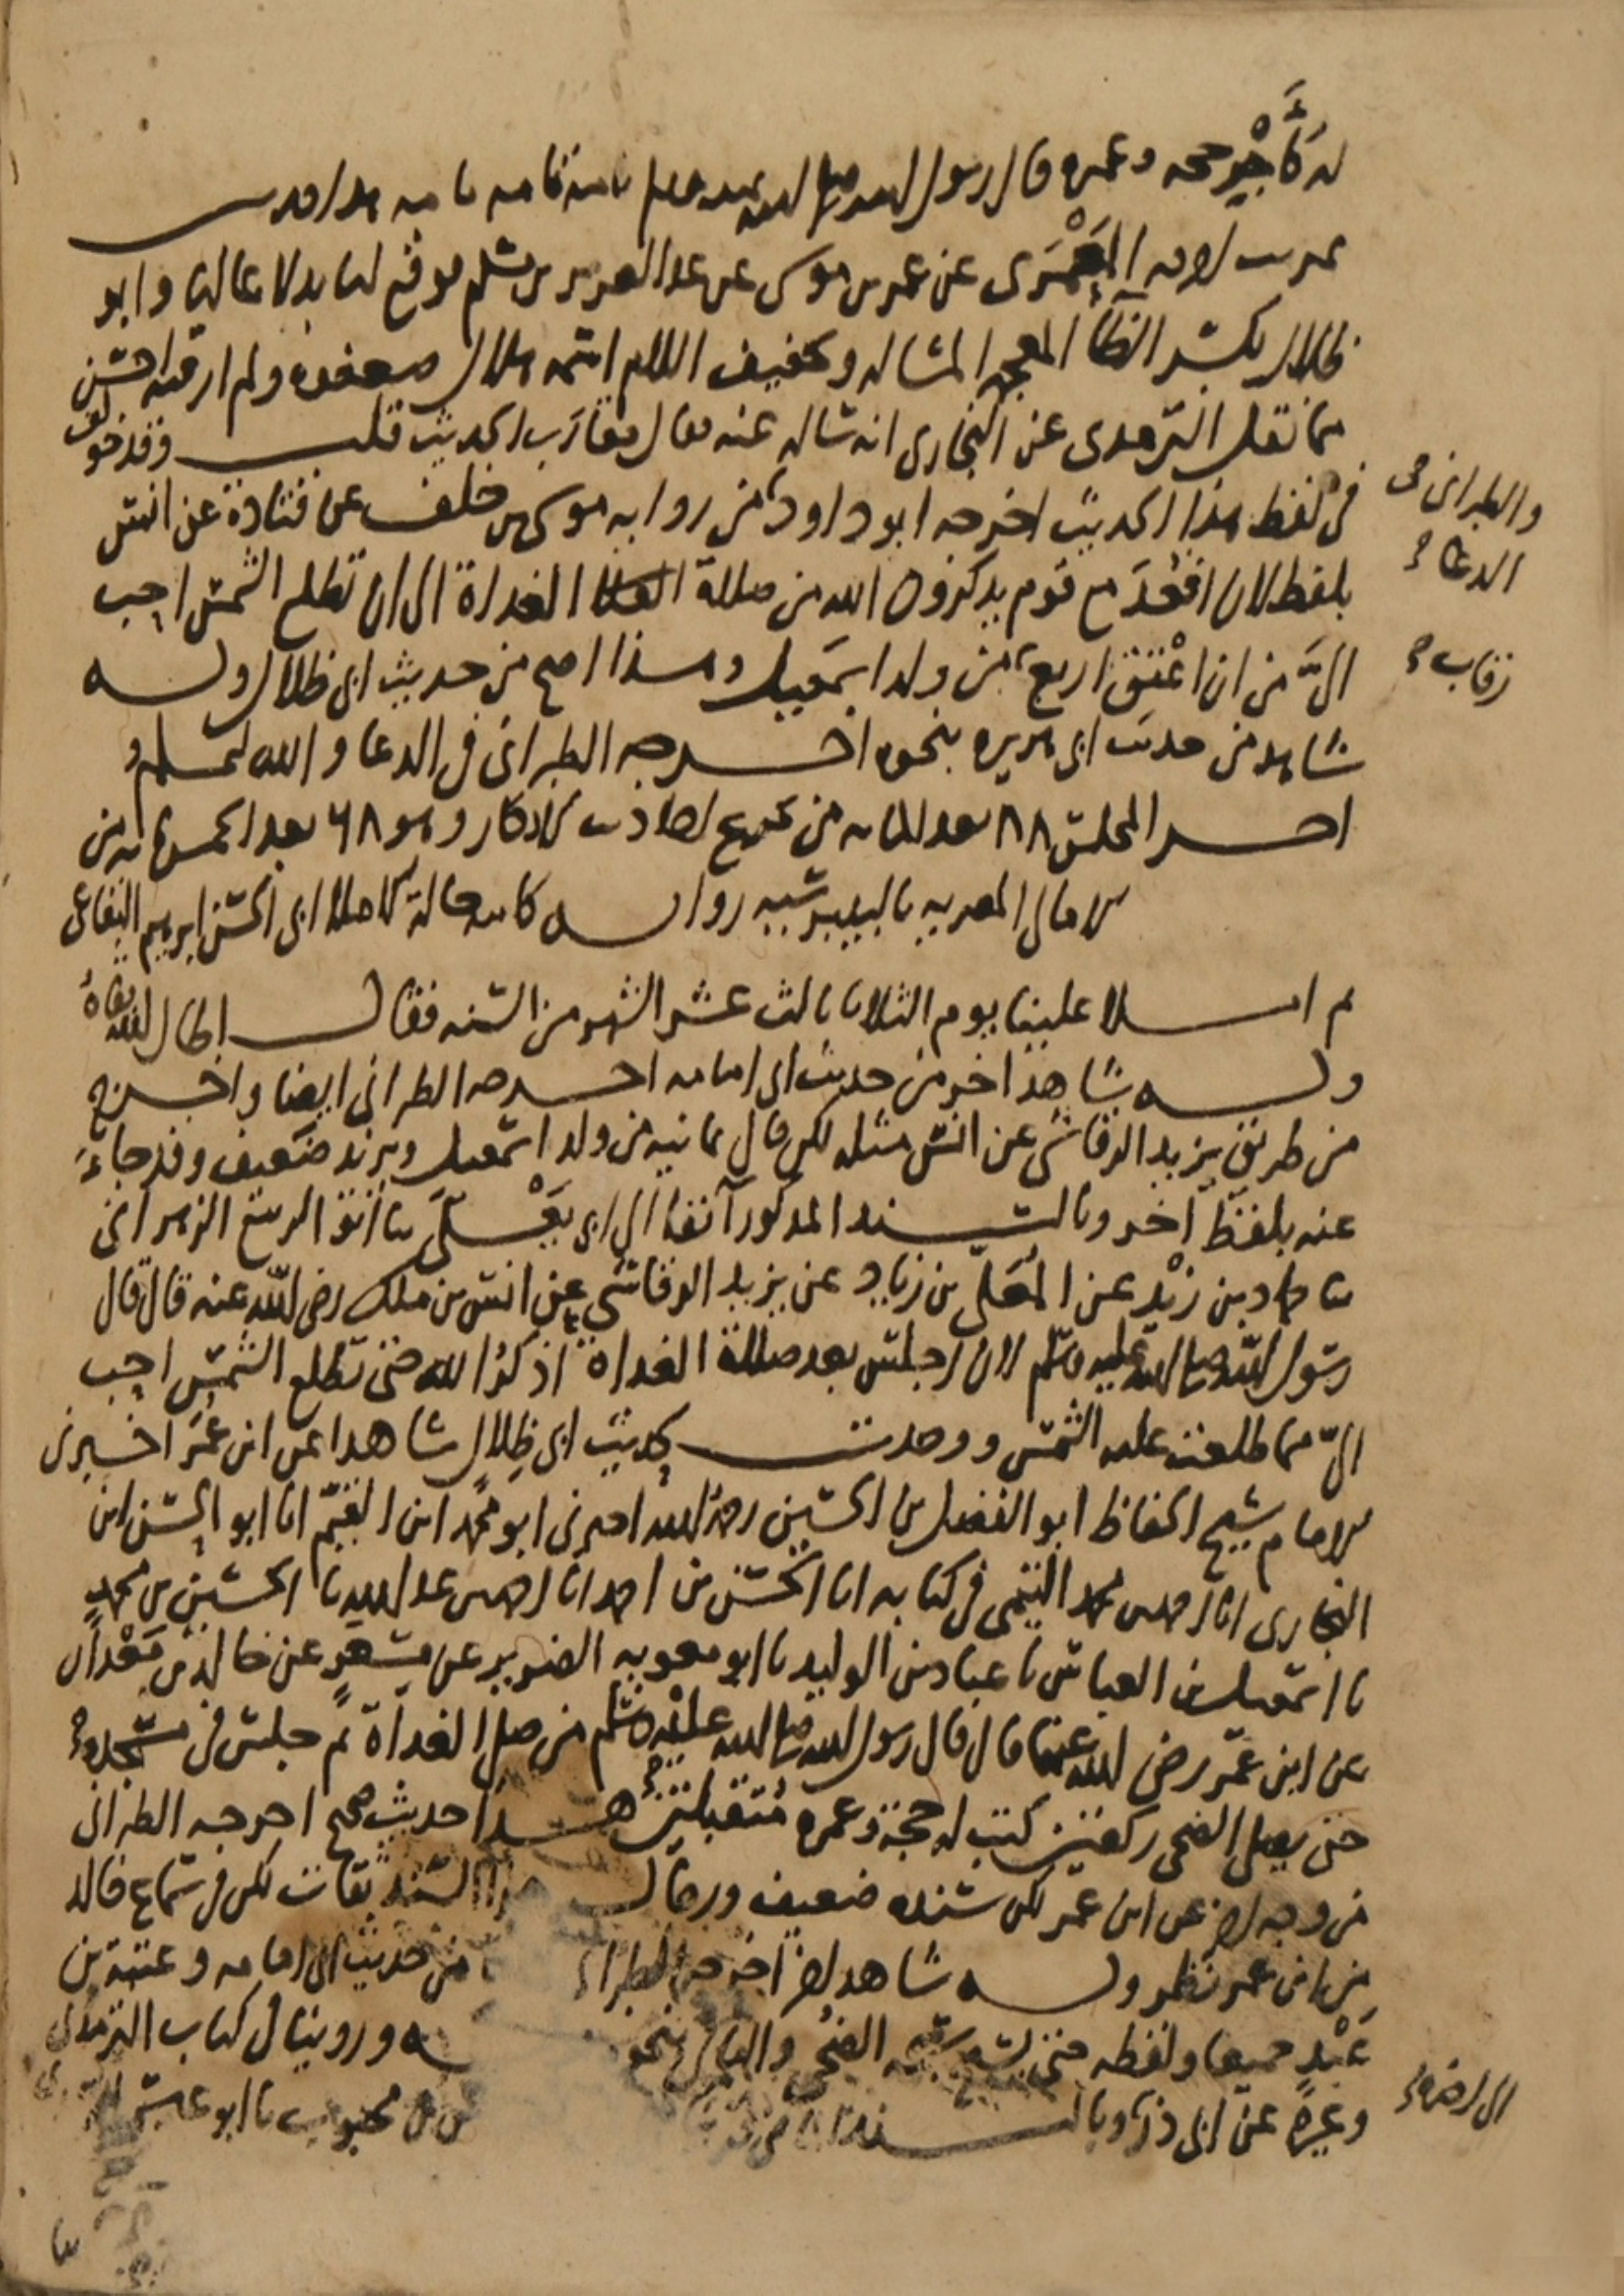 له كأجر حجة وعمرة قال رسول الله صلى الله عليه وسلم تامة تامة تامة هذا حديث
غريب لا من المعمري عن عمر بن موسى عن عبد العزيز بن مسلم فوقع لنا بدلا عاليا وابو
ظلال بكسر الظاء المعجمة المشالة وتخفيف اللام اسمه هلال ضعفوه ولم ار فيه احسن
مما نقل الترمذى عن البخارى انه ساله عنه فقال مقارب الحديث قلت وقد خولف
فى لفظ هذا الحديث اخرجه ابو داود من رواية موسى بن خلف عن قتادة عن انس
والطبرانى فى
الدعاء
بلفظ لان اقعد مع قوم يذكرون الله من صلاة الغداة الى ان تطلع الشمس احب
الىّ من ان اعتق اربع من ولد اسمعيل وهذا اصح من حديث ابى ظلال وله
رقاب
شاهد من حديث ابى هريره بنحوه اخرجه الطبرانى فى الدعا والله
اخر المجلس ٨٨ بعد المايه من تخريج احاديث الاذكار وهو ٦٨ بعد الخمسمائه من
الامالى المصريه بالبيبرسيه رواية كاتبه حالة الاملاء ابى الحسن ابرهيم البقاعى
ثم املا علينا يوم الثلاثا ثالث عشر الشهر من السنه فقال اطال الله بقاه
وله شاهد اخر من حديث ابى امامه اخرجه الطبرانى ايضا واخرج
من طريق يزيد الرقاشى عن انس مثله لكن قال ثمانيه من ولد اسمعيل ويزيد ضعيف وقد جاء
عنه بلفظ آخر وبالسند المذكور آنفا الى ابى يعلى ثنا ابو الربيع الزهرانى
ثنا حماد بن زيد عن المعلى بن زياد عن يزيد الرقاشى عن انس بن ملك رضى الله عنه قال قال
رسول الله صلى الله عليه وسلم لان اجلس بعد صلاة الغداة اذكر الله حتى تطلع الشمس احب
الىّ مما طلعت عليه الشمس ووجدت لحديث ابى ظلال شاهدا عن ابن عمر اخبرنى
الامام شيخ الحفاظ ابو الفضل بن الحسين رحمه الله اخبرنى ابو محمد ابن القيم انا ابو الحسن ابن
البخارى انا احمد بن محمد التيمى فى كتابه انا الحسن بن احمد انا احمد بن عبد الله ثنا الحسين بن محمد
نا اسمعيل بن العباس نا عباد بن الوليد نا ابو معويه الضرير عن مسعر عن خالد بن معدان
عن ابن عمر رضى الله عنهما قال قال رسول الله صلى الله عليه وسلم من صلى الغداة ثم جلس فى مسجده
حتى يصلى الضحى ركعتين كتب له حجة وعمرة متقبلتين هذا حديث اخرجه الطبرانى
من وجه اخر عن ابن عمر لكن سنده ضعيف ورجال هذا السند ثقات لكن فى سماع خالد
من ابن عمر نظر وله شاهد اخر اخرجه الطبرانى من حديث ابى امامه وعتبة بن
عبد جميعا ولفظه حتى يسبح سبحة الضحى والباقى بنحوه وروينا فى كتاب الترمذى
وغيره عن ابى ذر وبالسند بن محبوب نا ابو عيسى